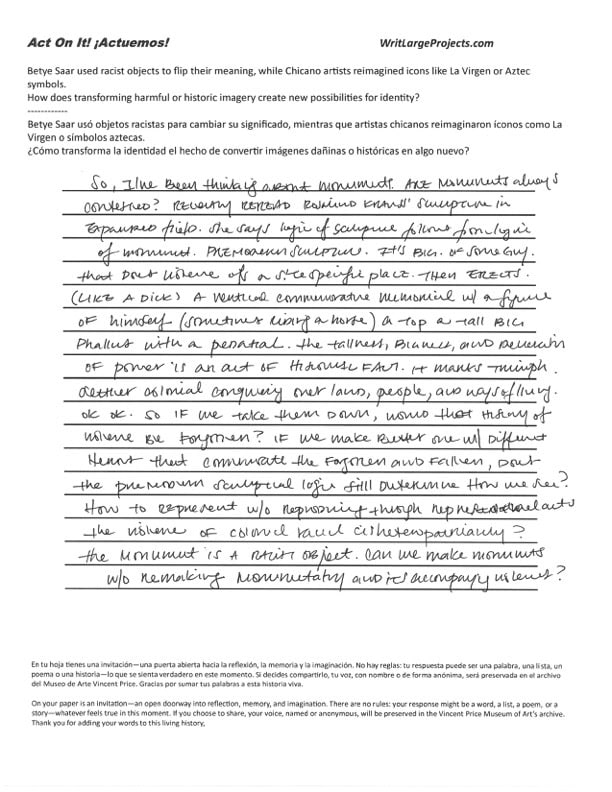 Act On It! ¡Actuemos!
WritLargeProjects.com
Betye Saar used racist objects to flip their meaning, while Chicano artists reimagined icons like La Virgen or Aztec
symbols.
How does transforming harmful or historic imagery create new possibilities for identity?
------------
Betye Saar usó objetos racistas para cambiar su significado, mientras que artistas chicanos reimaginaron íconos como La
Virgen o símbolos aztecas.
¿Cómo transforma la identidad el hecho de convertir imágenes dañinas o históricas en algo nuevo?
So, I've Been thinking about monuments. ARE Monuments always
contested? RECENTLY REREAD Rosalind Krauss' Sculpture in
Expanded field. she says logic of sculpture follows from logic
of monument. PREMODERN SCULPTURE. It's BIG. OF some guy.
that Does violence of a site specific place. Then ERECTS.
(LIKE A DICK) A vertical commemorative memorial w/ a figure
OF himself (sometimes riding a horse) a top a tall BIG
Phallus with a pedestal. the tallness, Bigness, and
OF power is an act OF it marks triumph.
colonial over land, people, and ways of living.
ok ok. so IF we take them DOWN, would that history of
violence BE Forgotten? IF we make Better one w/ Different
Heros that commemorate the Forgotten and Fallen, Does
the premodern sculptural logic still Determine How we see?
How to represent w/o reproducing through representational acts
the violence OF colonial racial cisheteropatriarchy?
the Monument is A RACIST OBJECT. Can we make monuments
w/o remaking and its accompanying violence?
En tu hoja tienes una invitación—una puerta abierta hacia la reflexión, la memoria y la imaginación. No hay reglas: tu respuesta puede ser una palabra, una lista, un
poema o una historia—lo que se sienta verdadero en este momento. Si decides compartirlo, tu voz, con nombre o de forma anónima, será preservada en el archivo
del Museo de Arte Vincent Price. Gracias por sumar tus palabras a esta historia viva.
On your paper is an invitation—an open doorway into reflection, memory, and imagination. There are no rules: your response might be a word, a list, a poem, or a
story—whatever feels true in this moment. If you choose to share, your voice, named or anonymous, will be preserved in the Vincent Price Museum of Art's archive.
Thank you for adding your words to this living history,